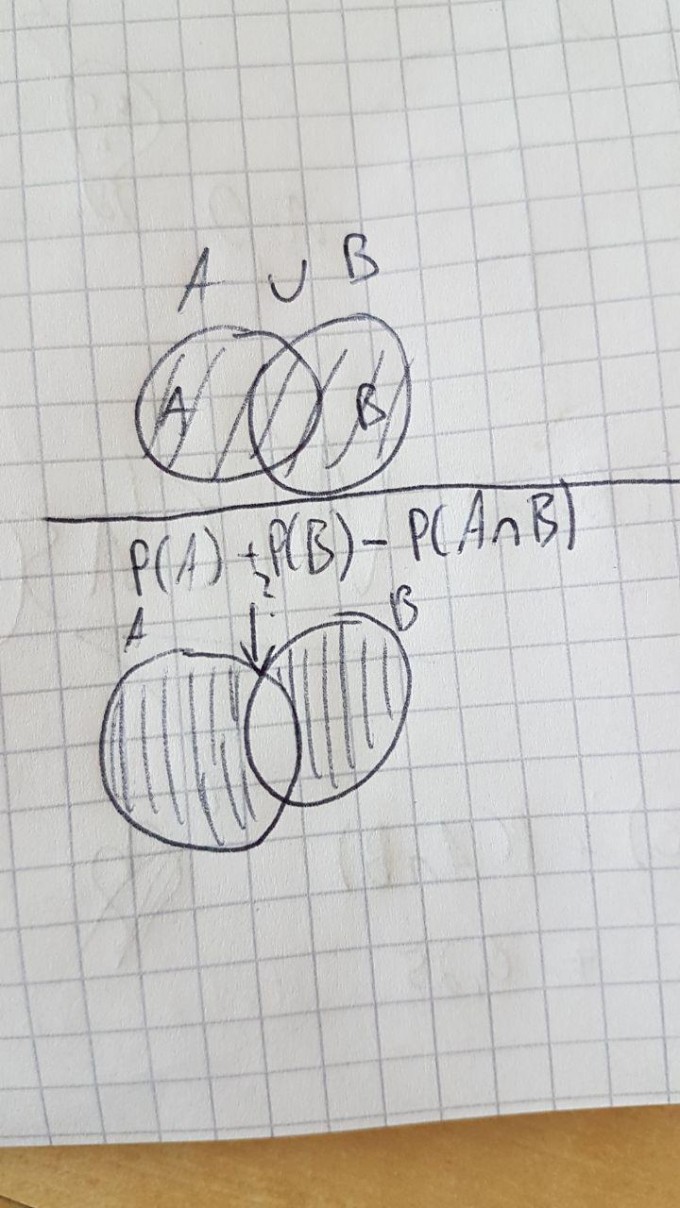 A ∪ B
A B
P(A) + P(B) - P(A∩B)
?
A B